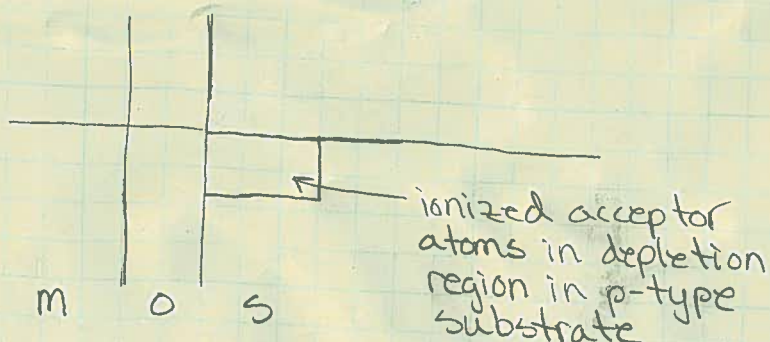 ionized acceptor
atoms in depletion
region in p-type
substrate
m O S